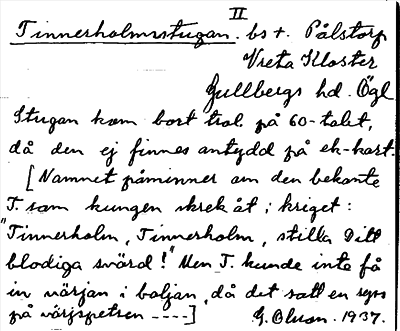 II
Tinnerholmsstugan. bs t. Pålstorp
Vreta Kloster
Gullbergs hd. Ögl.
Stugan kom bort trol. på 60-talet,
då den ej finnes antydd på ek-kart.
[Namnet påminner om den bekante
T. som kungen skrek åt i kriget:
"Tinnerholm, Tinnerholm, stilla Ditt
blodiga svärd!" Men T. kunde inte få
in värjan i baljan, då det satt en ryss
på värjspetsen ----]  G. Olson. 1937.